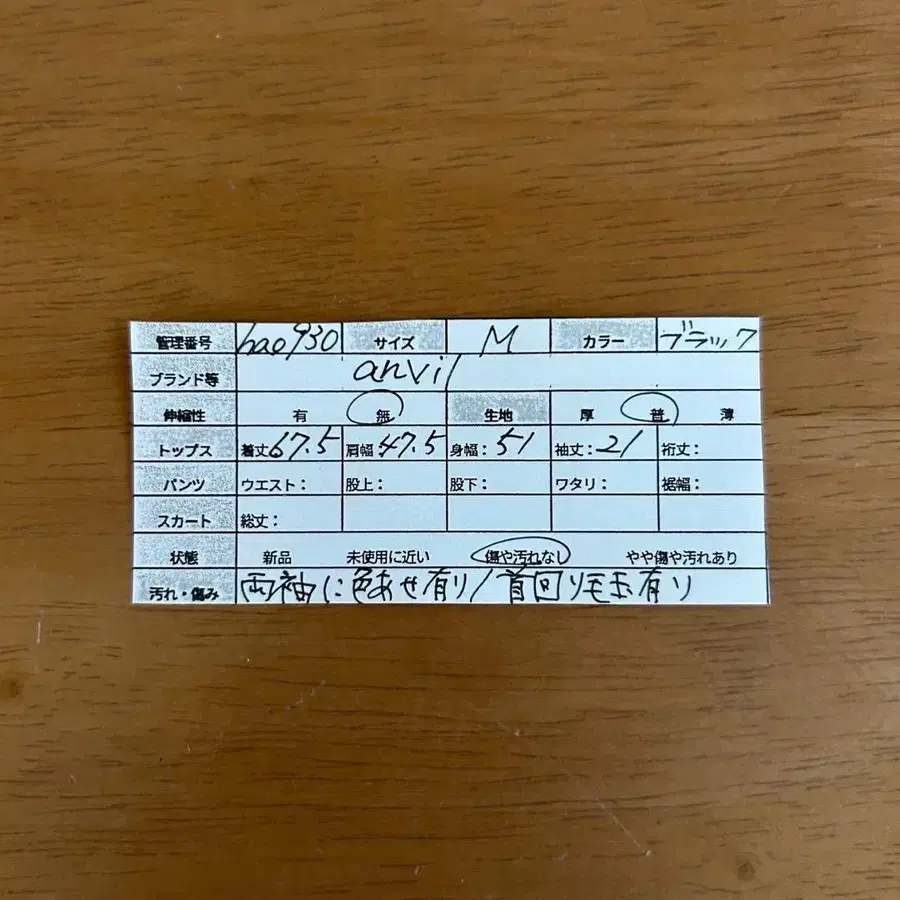 管理番号 hao930 サイズ M カラー ブラック
ブランド等 anvil
伸縮性 有 無 生地 厚 普 薄
トップス 着丈67.5 肩幅:47.5 身幅:51 袖丈:21 裄丈:
パンツ ウエスト: 股上: 股下: ワタリ: 裾幅:
スカート 総丈:
状態 新品 未使用に近い 傷や汚れなし やや傷や汚れあり
汚れ・傷み 両袖に色あせ有り/首回り毛玉有り